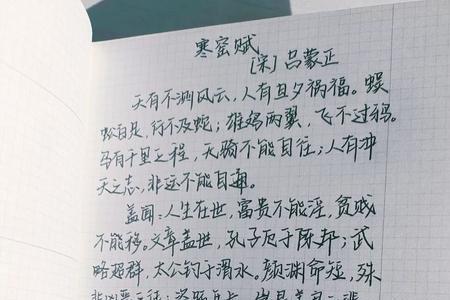 寒窑赋
[宋] 吕蒙正
天有不测风云，人有旦夕祸福。蜈
蚣百足，行不及蛇；雄鸡两翼，飞不过鸦。
马有千里之程，无骑不能自往；人有冲
天之志，非运不能自通。
盖闻：人生在世，富贵不能淫，贫贱
不能移。文章盖世，孔子厄于陈邦；武
略超群，太公钓于渭水。颜渊命短，殊